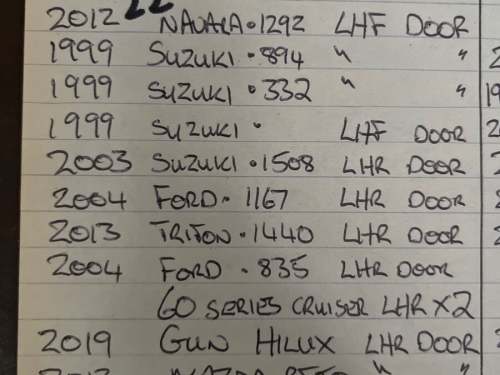 22
2012 NAVARA • 1292 LHF DOOR
1999 SUZUKI • 894 " "
1999 SUZUKI • 332 " "
1999 SUZUKI • LHF DOOR
2003 SUZUKI • 1508 LHR DOOR
2004 FORD • 1167 LHR DOOR
2013 TRITON • 1440 LHR DOOR
2004 FORD • 835 LHR DOOR
60 SERIES CRUISER LHR X2
2019 GUN HILUX LHR DOOR